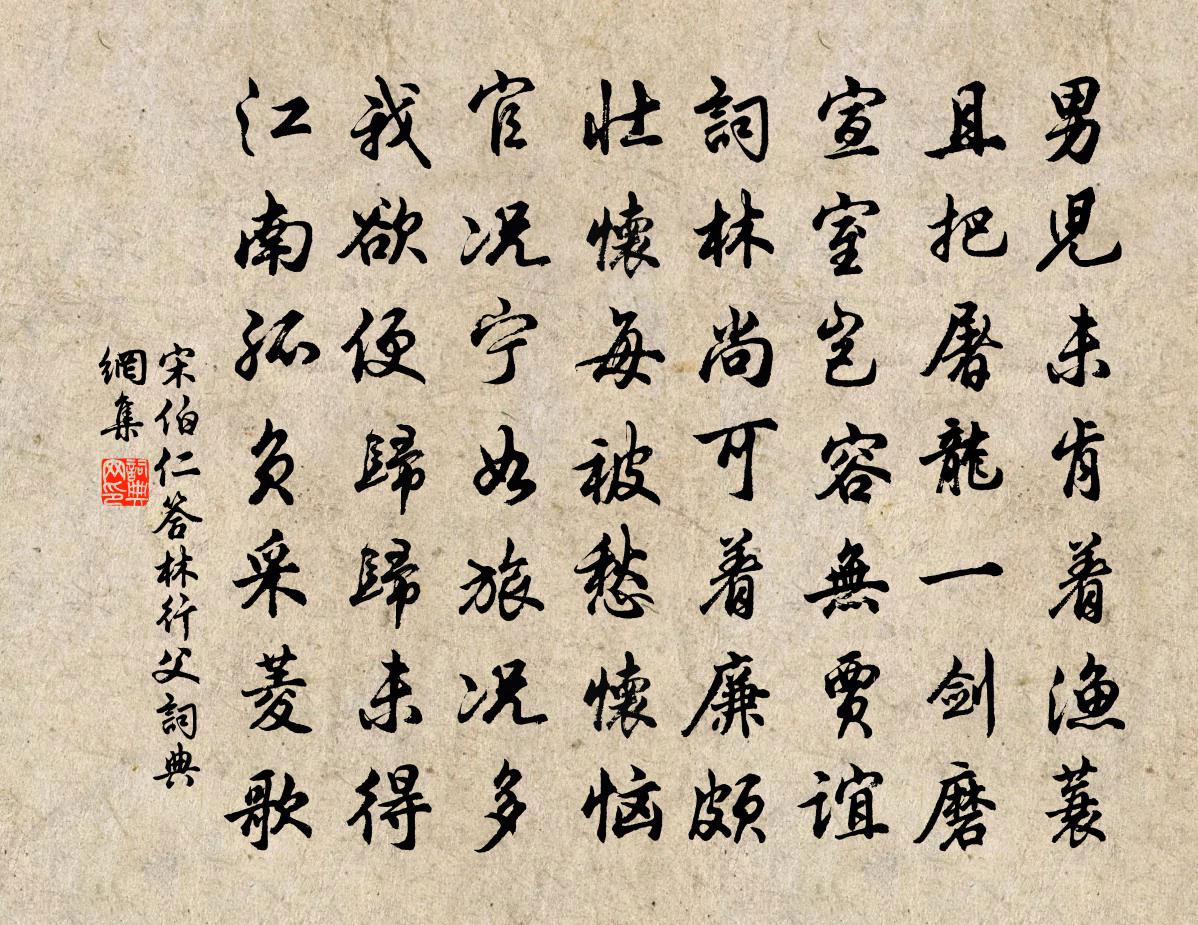 男児未肯着漁蓑
且把屠龍一劍磨
宣室豈容無賈誼
詞林尚可着廉頗
壯懷每被愁懷惱
官况宁如旅况多
我欲便歸歸未得
江南孤負采菱歌
宋伯仁答林行父詞典
網集
詞典
网印